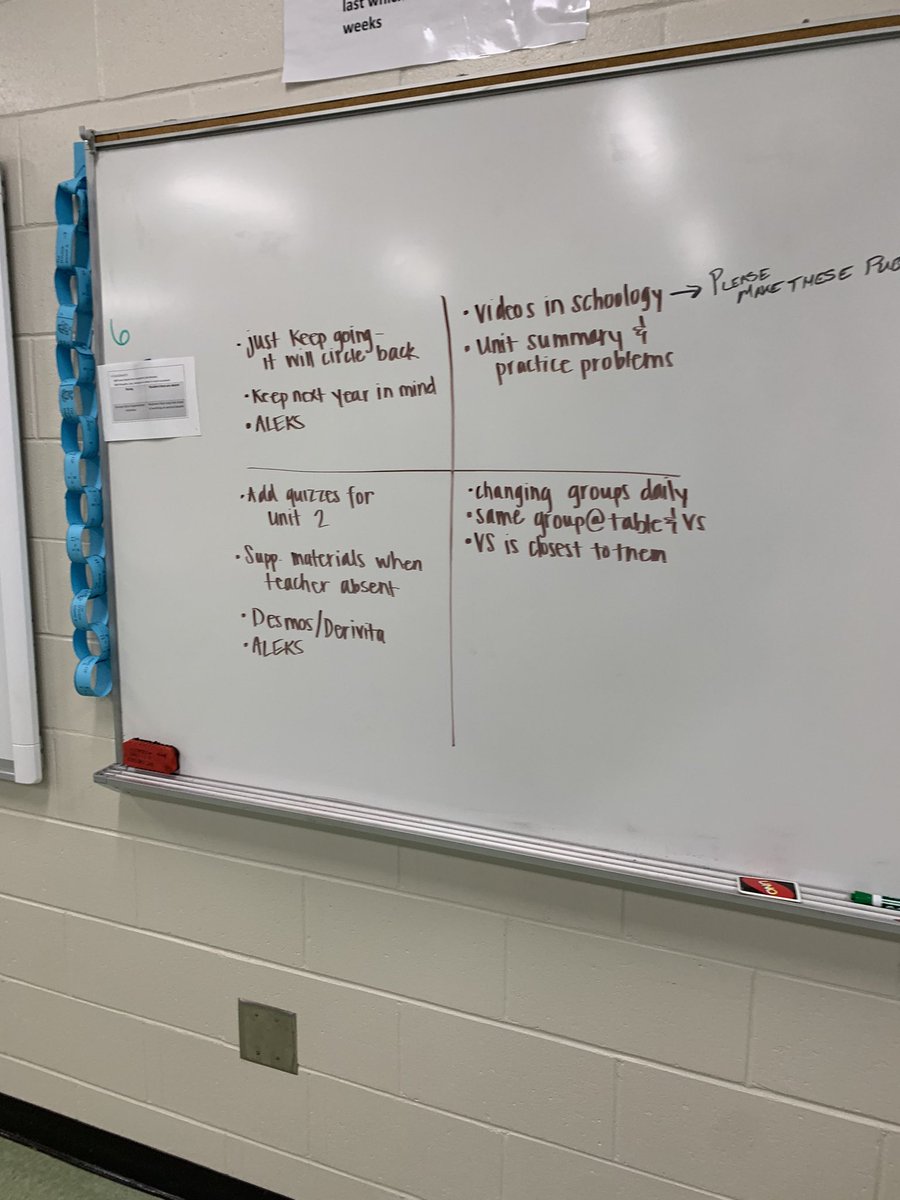 last
weeks
6
• just keep going –
it will circle back
• Keep next year in mind
• ALEKS
• Videos in schoology → PLEASE
MAKE THESE
• Unit summary &
practice problems
• Add quizzes for
unit 2
• Supp. materials when
teacher absent
• Desmos/Derivita
• ALEKS
• changing groups daily
• same group@table & VS
• VS is closest to them
UNO